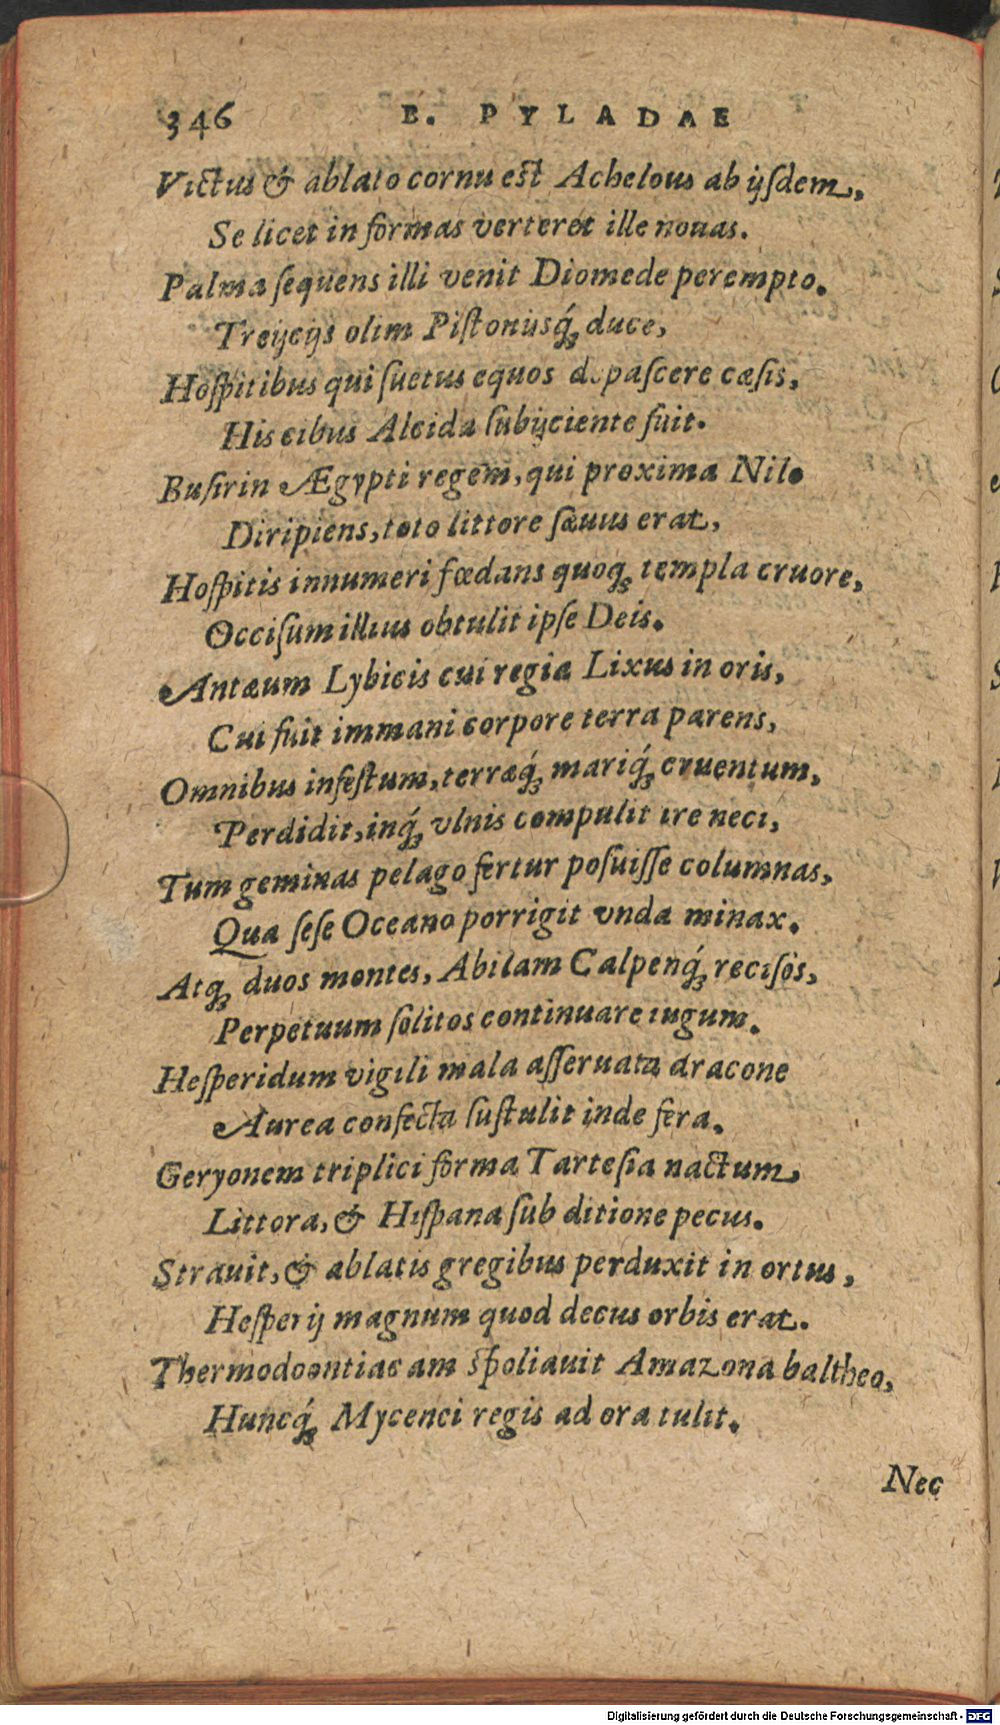 346 B. PYLADAE
Victus & ablato cornu est Achelous ab ijſdem,
Se licet in formas verteret ille nouas.
Palma ſequens illi venit Diomede perempto.
Treijcijs olim Piſtonijsq́; duce,
Hoſpitibus qui ſuetus equos depaſcere cæſis,
His cibus Alcida ſubijciente fuit.
Buſirin Ægypti regem, qui proxima Nilo
Diripiens, toto littore ſæuus erat,
Hoſpitis innumeri fœdans quoq; templa cruore,
Occiſum illius obtulit ipſe Deis.
Antæum Lybicis cui regia Lixus in oris,
Cui fuit immani corpore terra parens,
Omnibus infeſtum, terræq́; mariq́; cruentum,
Perdidit, inq́; vlnis compulit ire neci,
Tum geminas pelago fertur poſuiſſe columnas,
Qua ſeſe Oceano porrigit vnda minax.
Atq; duos montes, Abilam Calpenq́; reciſos,
Perpetuum ſolitos continuare iugum.
Heſperidum vigili mala aſſeruata dracone
Aurea confecta ſuſtulit inde fera.
Geryonem triplici forma Tarteſia nactum,
Littora, & Hiſpana ſub ditione pecus.
Strauit, & ablatis gregibus perduxit in ortus,
Heſperij magnum quod decus orbis erat.
Thermodoontiacam ſpoliauit Amazona baltheo,
Huncq́; Mycenei regis ad ora tulit.
Nec
Digitalisierung gefördert durch die Deutsche Forschungsgemeinschaft - DFG